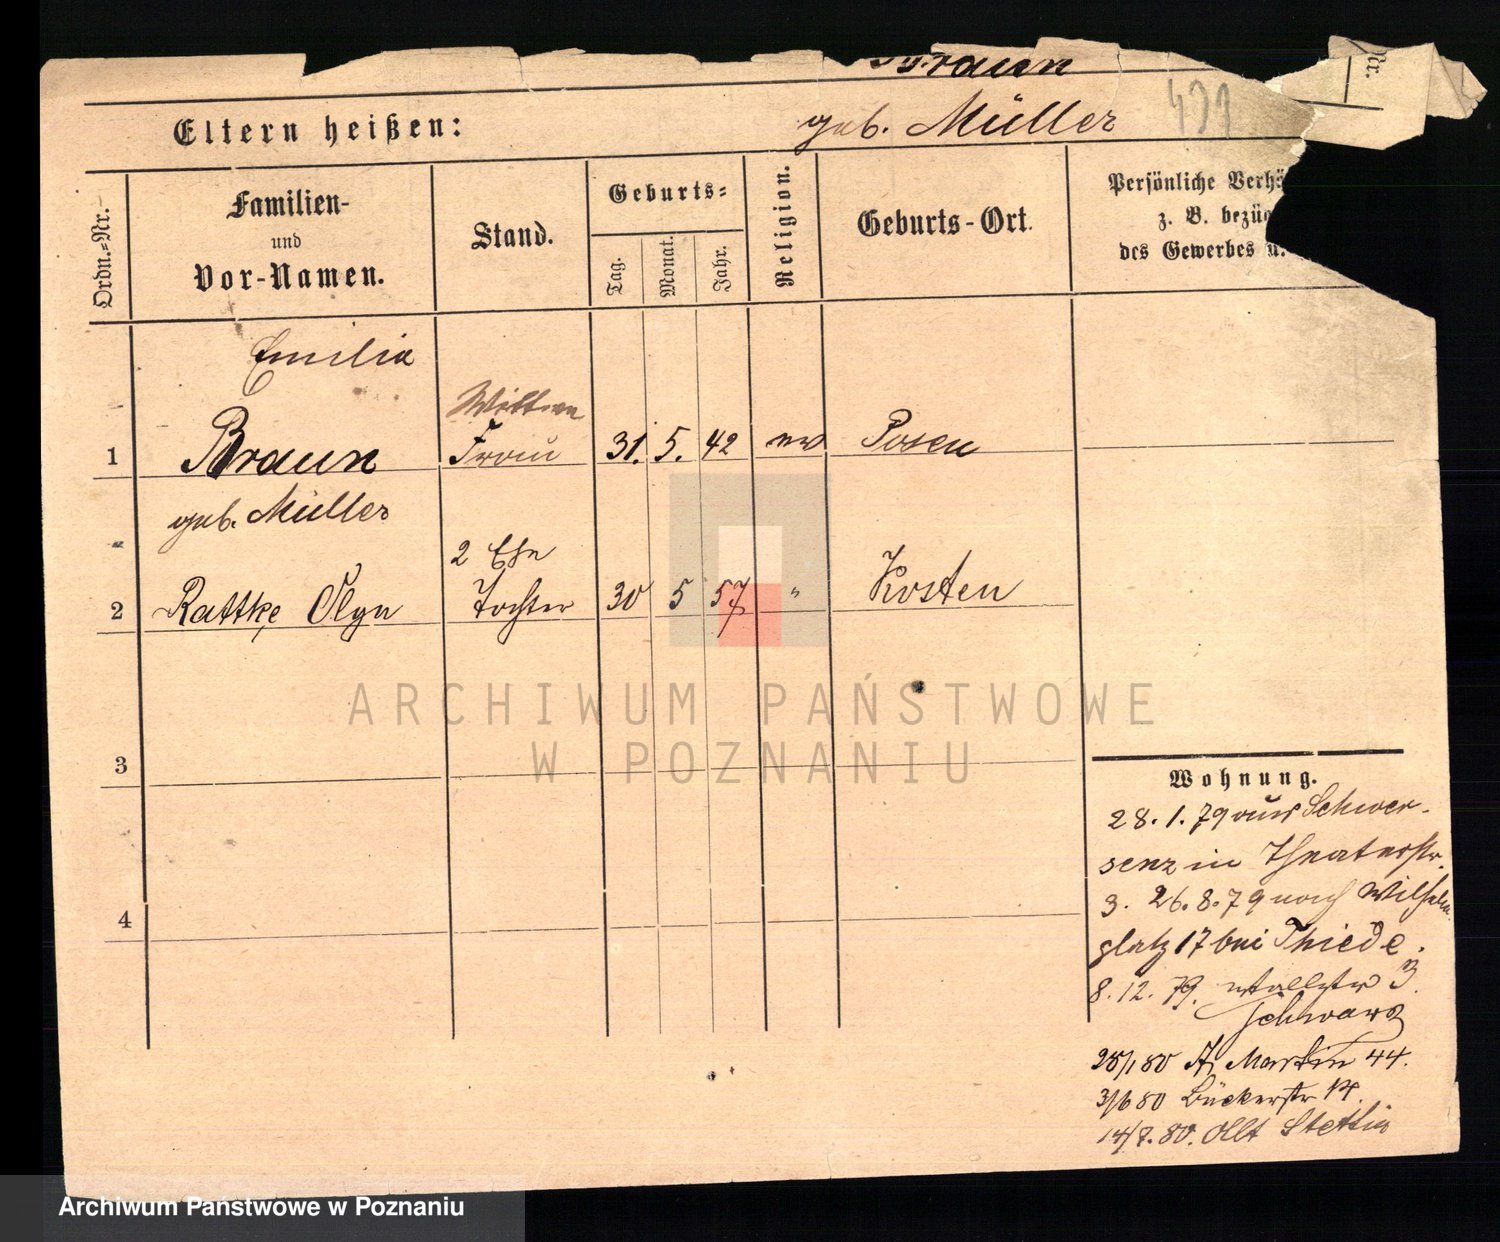 Braun
Nr.
Eltern heißen:
geb. Müller
Ordn.=Nr.
Familien-
und
Vor-Namen.
Stand.
Geburts=
Tag.
Monat.
Jahr.
Religion.
Geburts-Ort.
Persönliche Verhä
z. B. bezüg
des Gewerbes u.
Emilia
Wittwe
1 Braun Frau 31. 5. 42 ev Posen
geb. Müller
2 Ehe
2 Rattke Olga Tochter 30 5 57 " Kosten
3
4
Wohnung.
28. 1. 79 aus Schwer-
senz in Theaterstr.
3. 26. 8. 79 nach Wilhelm
platz 17 bei Thiede.
8. 12. 79. 3
Schwarz
28/1 80 St Martin 44.
3/6 80 Bückerstr
14/7. 80. Stettin
ARCHIWUM PAŃSTWOWE
W POZNANIU
Archiwum Państwowe w Poznaniu